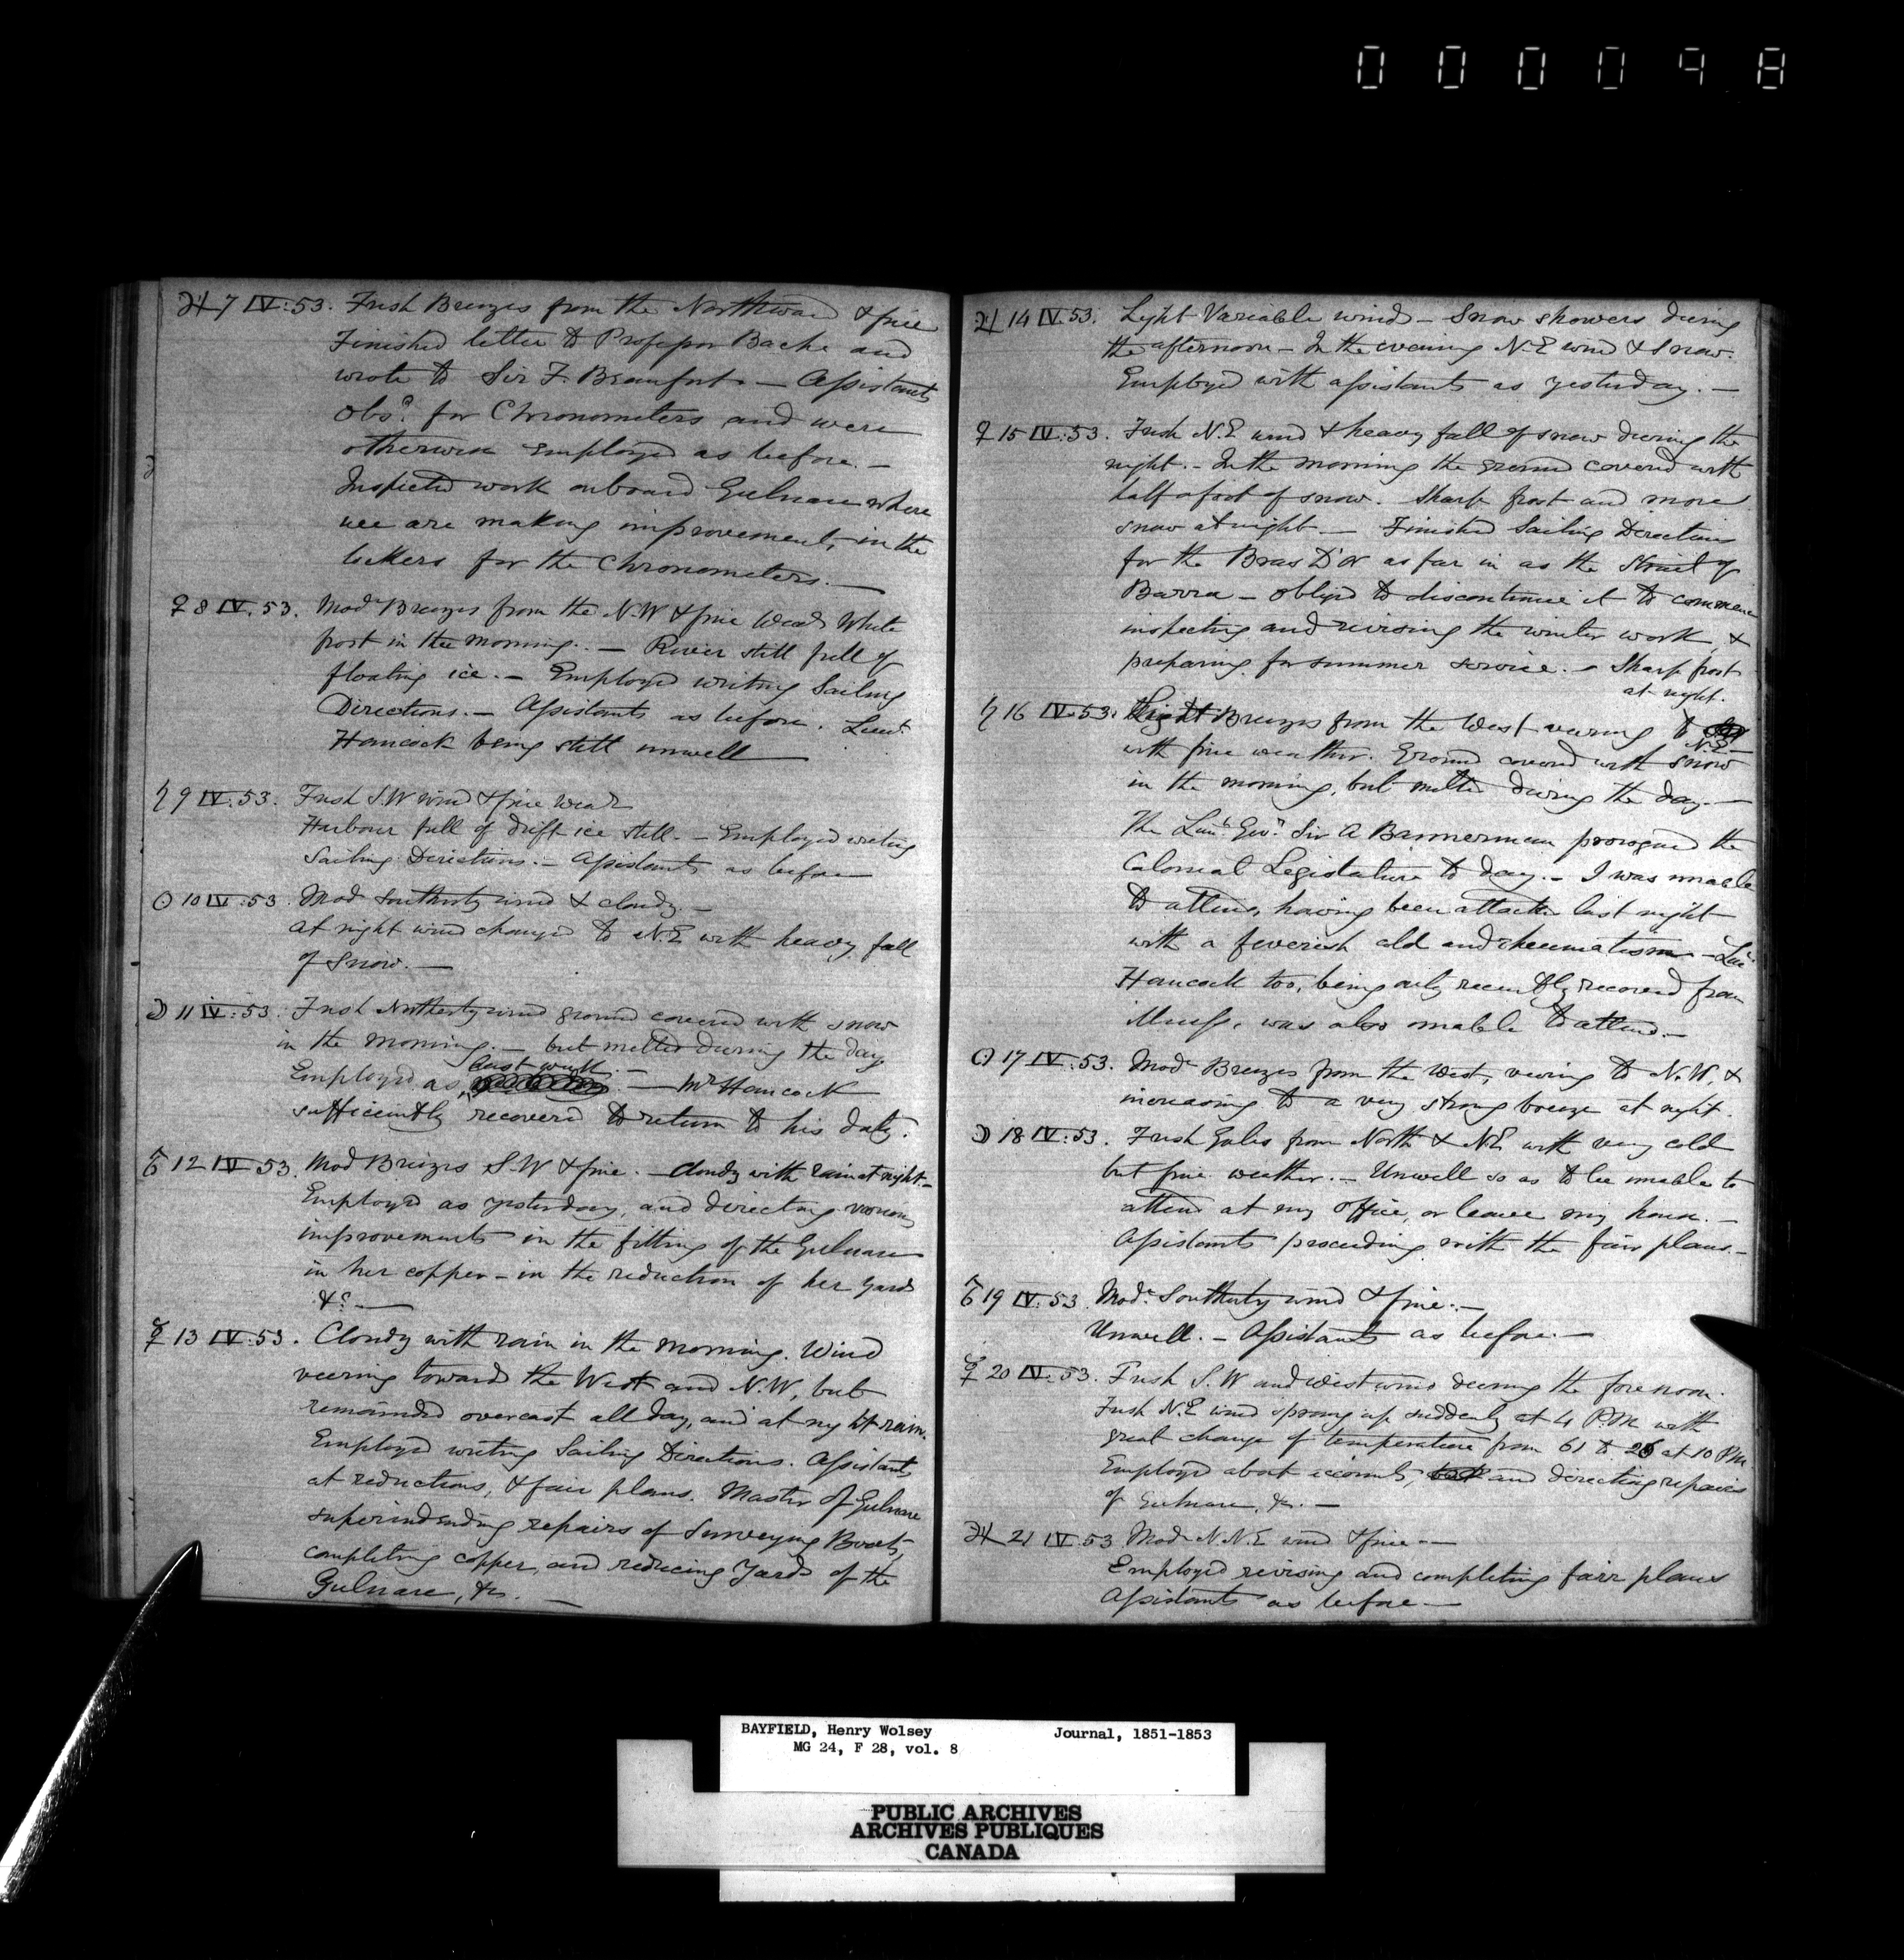 000098
♃ 7 IV: 53. Fresh Breezes from the Northward & fine
Finished letter to Professor Bache and
wrote to Sir F. Beaufort. — Assistants
Obsd. for Chronometers and were
otherwise employed as before. —
Inspected work onboard Gulnare where
we are making improvements, in the
lockers for the Chronometers. —
♀ 8 IV. 53. Modr Breezes from the N.W & fine Wear White
frost in the morning. — River still full of
floating ice. — Employed writing Sailing
Directions. — Assistants as before. Lieut
Hancock being still unwell —
♄ 9 IV: 53. Fresh S.W wind & fine Wear
Harbour full of drift ice still. — Employed writing
Sailing Directions. — Assistants as before
☉ 10 IV: 53. Mod Southerly wind & cloudy —
at night wind changed to N.E with heavy fall
of Snow. —
☽ 11 IV: 53. Fresh Northerly wind ground covered with snow
in the morning. — but melted during the day
last week. —
Employed as — Mr Hancock
sufficiently recovered to return to his duty.
♂ 12 IV 53. Mod Breezes S.W & fine. — Cloudy with rain at night. —
Employed as yesterday, and directing various
improvements in the fitting of the Gulnare
in her copper — in the reduction of her yards
&c. —
☿ 13 IV: 53. Cloudy with rain in the morning. Wind
veering towards the West and N.W, but
remainded overcast all day, and at night rain.
Employed writing Sailing Directions. Assistants
at reductions, & fair plans. Master of Gulnare
superindending repairs of Surveying Boats,
completing copper, and reducing Yards of the
Gulnare, &c. —
♃ 14 IV. 53. Light Variable winds — Snow showers during
the afternoon — In the evening N.E wind & snow.
Employed with assistants as yesterday. —
♀ 15 IV: 53. Fresh N.E wind & heavy fall of snow during the
night. — In the morning the ground covered with
half a foot of snow. Sharp frost and more
snow at night — Finished Sailing Directions
for the Bras D'or as far in as the Strait of
Barra — obliged to discontinue it to commence
inspecting and revising the winter work, &
preparing for summer service. — Sharp frost
at night.
♄ 16 IV. 53. Light Breezes from the West veering to
N.E —
with fine weather. Ground covered with snow
in the morning, but melted during the day. —
The Lieut. Govr. Sir A Bannerman prorogued the
Colonial Legislature to day. — I was unable
to attend, having been attacked last night
with a feverish cold and rheumatism — Lieut
Hancock too, being only recently recovered from
illness, was also unable to attend. —
☉ 17 IV: 53. Modr Breezes from the West, veering to N.W, &
increasing to a very strong breeze at night.
☽ 18 IV: 53. Fresh Gales from North & N.E with very cold
but fine weather. — Unwell so as to be unable to
attend at my Office, or leave my house. —
Assistants proceeding with the fair plans. —
♂ 19 IV: 53. Modr Southerly wind & fine. —
Unwell. — Assistants as before. —
☿ 20 IV. 53. Fresh S.W and West wind during the forenoon.
Fresh N.E wind sprang up suddenly at 4 P.M. with
great change of temperature from 61 to 26 at 10 P.M.
Employed about accounts, and directing repairs
of Gulnare, &c. —
♃ 21 IV. 53 Modr N.N.E wind & fine —
Employed revising and completing fair plans
Assistants as before —
BAYFIELD, Henry Wolsey Journal, 1851-1853
MG 24, F 28, vol. 8
PUBLIC ARCHIVES
ARCHIVES PUBLIQUES
CANADA